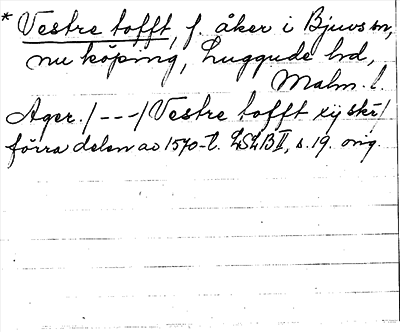 * Vestre tofft, f. åker i Bjuvs sn,
nu köping, Luggude hd,
Malm. l.
Ager. / --- / Vestre tofft xij skr /
förra delen av 1570-t. LSLB II, s. 19. orig.